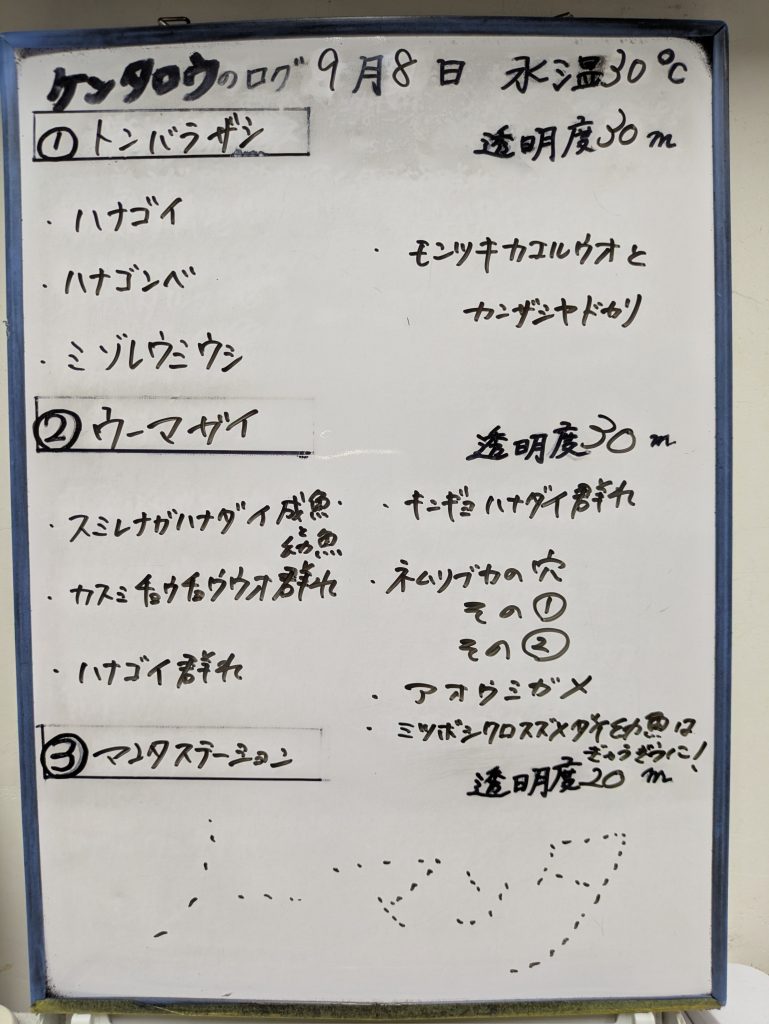 ケンタロウのログ 9月8日 水温30℃
① トンバラザシ
透明度30m
・ハナゴイ
・ハナゴンベ
・ミゾレウミウシ
・モンツキカエルウオと
カンザシヤドカリ
② ウーマザイ
透明度30m
・スミレナガハナダイ成魚
と
幼魚
・カスミチョウチョウウオ群れ
・ハナゴイ群れ
・キンギョハナダイ群れ
・ネムリブカの穴
その①
その②
・アオウミガメ
・ミツボシクロスズメダイ幼魚は
ぎゅうぎゅうに!
③ マンタステーション
透明度20m